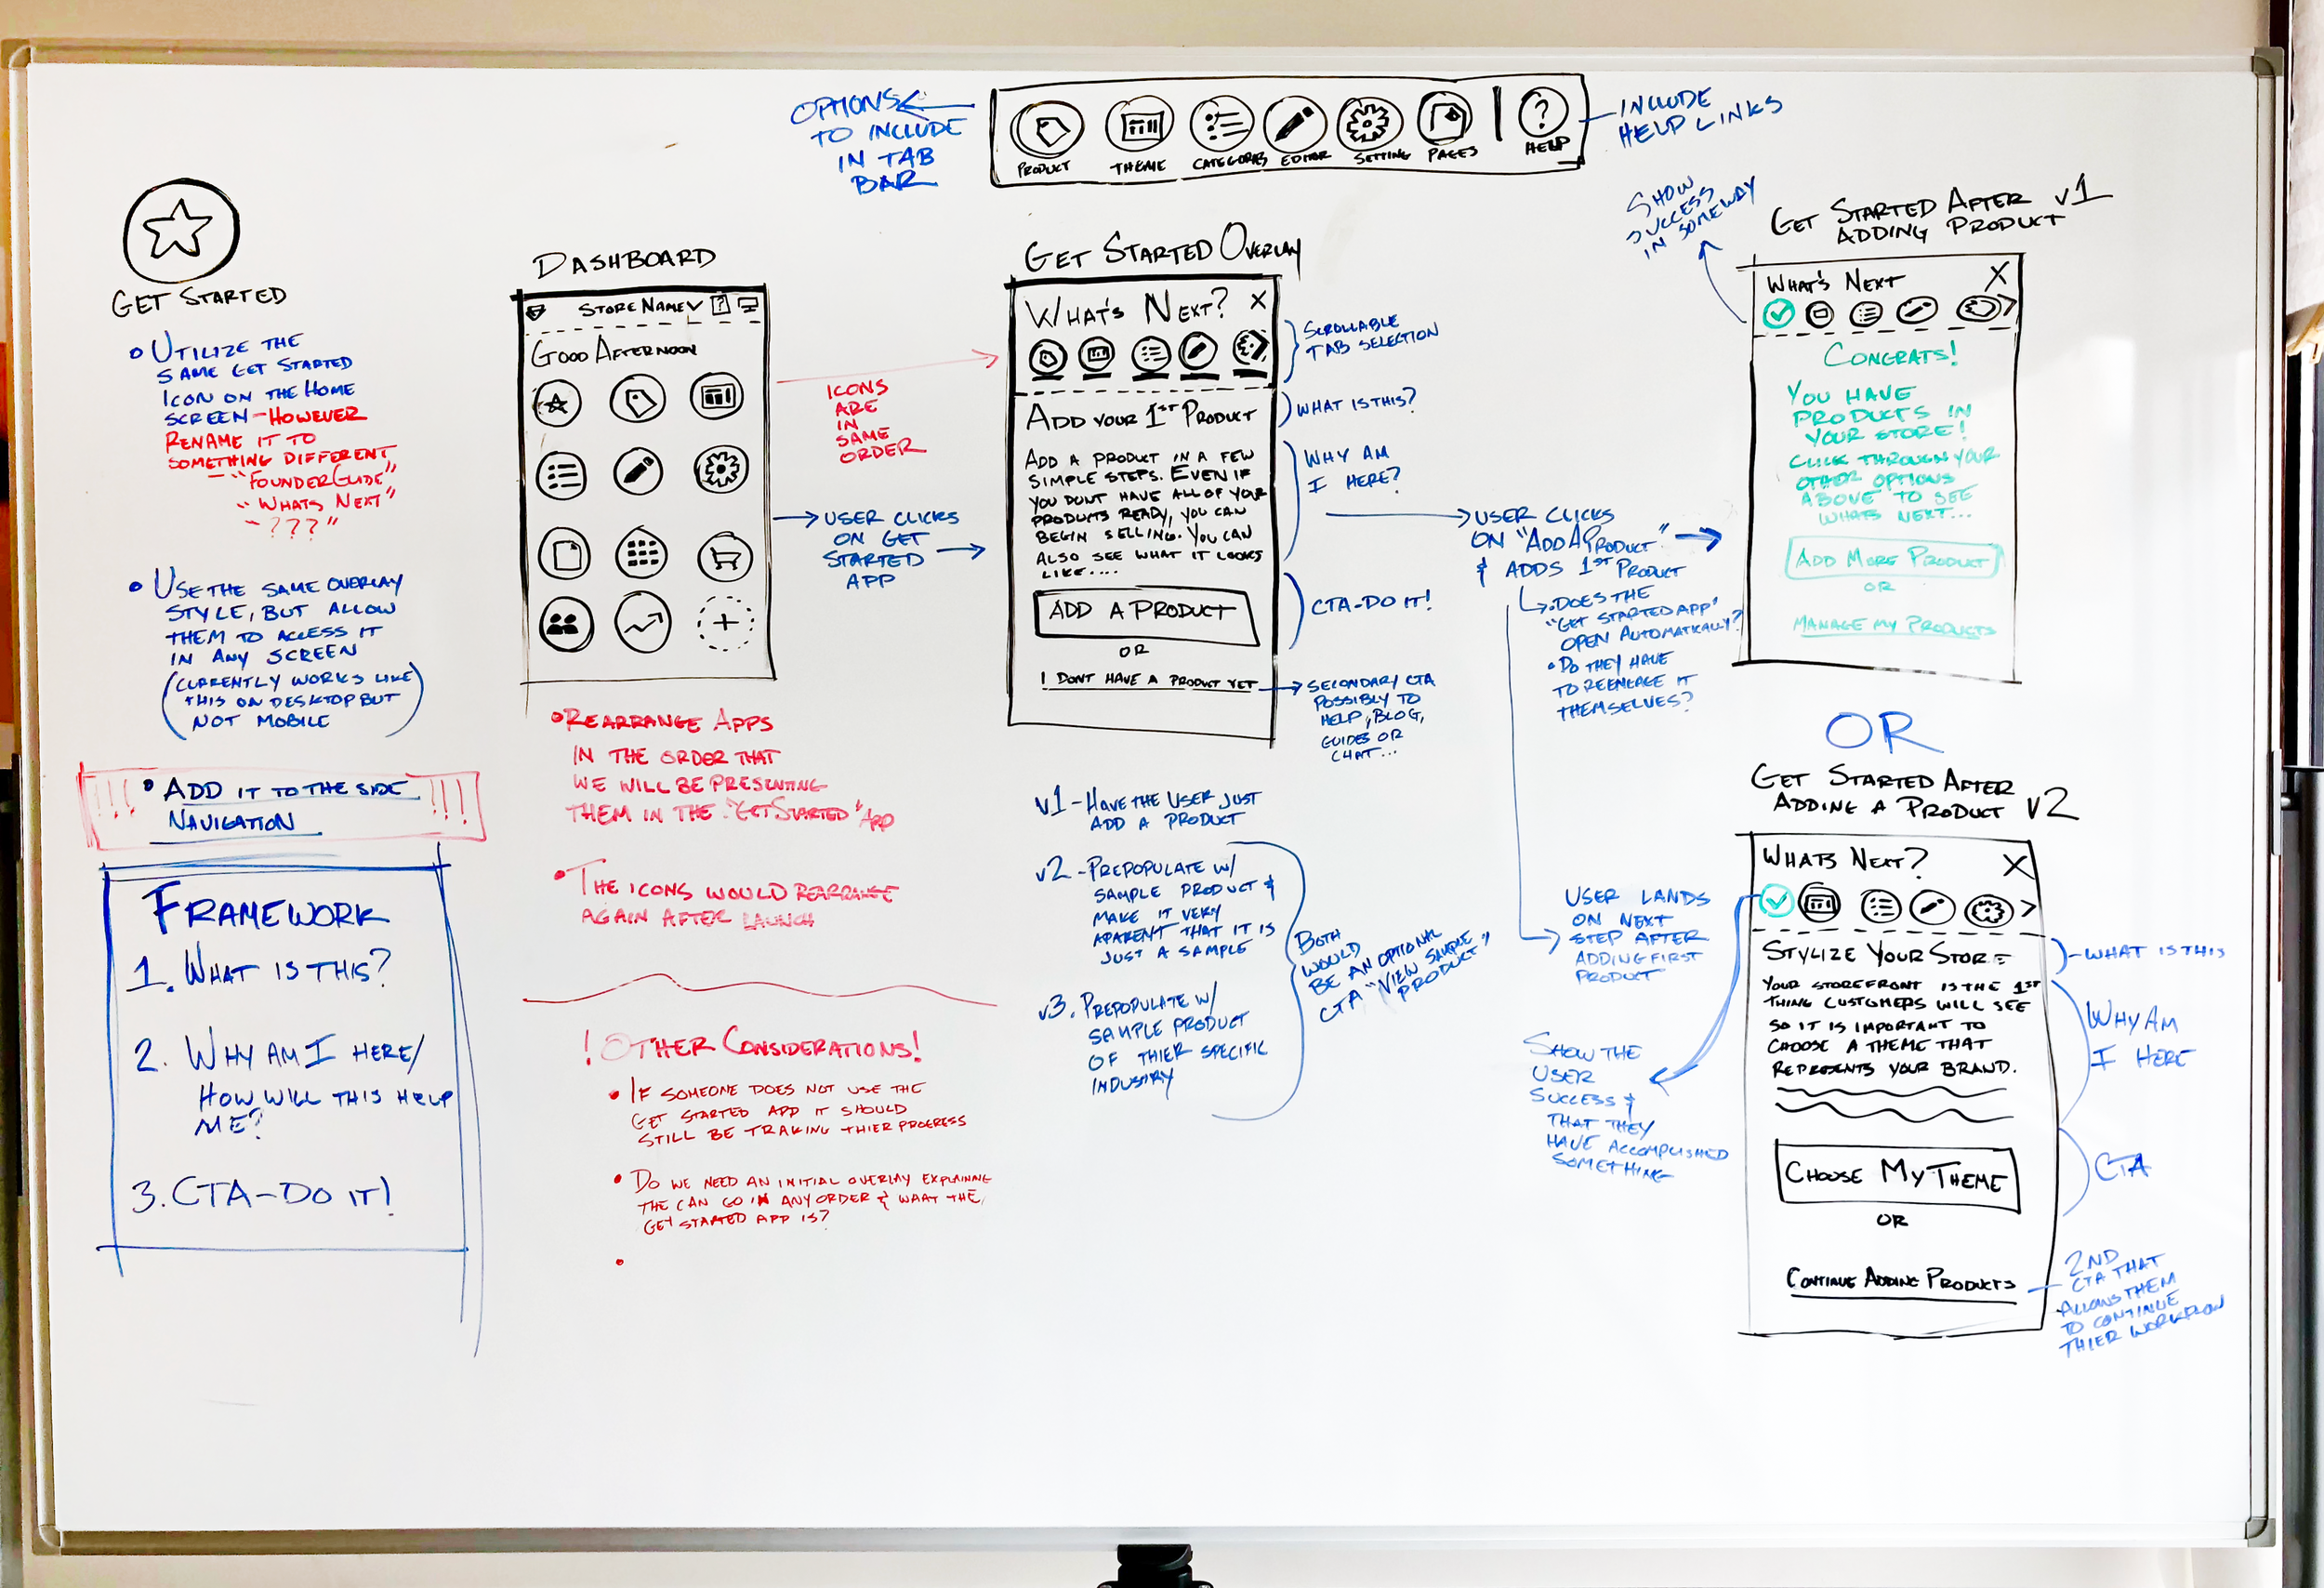 OPTIONS
TO INCLUDE
IN TAB
BAR
PRODUCT
THEME
CATEGORIES
EDITOR
SETTING
PAGES
HELP
INCLUDE
HELP LINKS
GET STARTED
• UTILIZE THE
SAME GET STARTED
ICON ON THE HOME
SCREEN - HOWEVER
RENAME IT TO
SOMETHING DIFFERENT
- "FOUNDERGUIDE"
- "WHATS NEXT"
- ???"
• USE THE SAME OVERLAY
STYLE, BUT ALLOW
THEM TO ACCESS IT
IN ANY SCREEN
(CURRENTLY WORKS LIKE
THIS ON DESKTOP BUT
NOT MOBILE)
!!! • ADD IT TO THE SIDE !!!
NAVIGATION
FRAMEWORK
1. WHAT IS THIS?
2. WHY AM I HERE/
HOW WILL THIS HELP
ME?
3. CTA - DO IT!
DASHBOARD
STORE NAME ?
GOOD AFTERNOON
ICONS
ARE
IN
SAME
ORDER
USER CLICKS
ON GET
STARTED
APP
• REARRANGE APPS
IN THE ORDER THAT
WE WILL BE PRESENTING
THEM IN THE "GET STARTED" APP
• THE ICONS WOULD REARRANGE
AGAIN AFTER LAUNCH
! OTHER CONSIDERATIONS!
• IF SOMEONE DOES NOT USE THE
GET STARTED APP IT SHOULD
STILL BE TRAKING THIER PROGRESS
• DO WE NEED AN INITIAL OVERLAY EXPLAINING
THE CAN GO IN ANY ORDER & WAAT THE
GET STARTED APP IS?
•
GET STARTED OVERLAY
WHAT'S NEXT? X
SCROLLABLE
TAB SELECTION
ADD YOUR 1ST PRODUCT
WHAT IS THIS?
ADD A PRODUCT IN A FEW
SIMPLE STEPS. EVEN IF
YOU DONT HAVE ALL OF YOUR
PRODUCTS READY, YOU CAN
BEGIN SELLING. YOU CAN
ALSO SEE WHAT IT LOOKS
LIKE....
WHY AM
I HERE?
ADD A PRODUCT
CTA - DO IT!
OR
I DONT HAVE A PRODUCT YET
SECONDARY CTA
POSSIBLY TO
HELP, BLOG,
GUIDES OR
CHAT...
V1 - HAVE THE USER JUST
ADD A PRODUCT
V2 - PREPOPULATE W/
SAMPLE PRODUCT &
MAKE IT VERY
APARENT THAT IT IS
JUST A SAMPLE
V3. PREPOPULATE W/
SAMPLE PRODUCT
OF THIER SPECIFIC
INDUSTRY
BOTH
WOULD
BE AN OPTIONAL
CTA "VIEW SAMPLE
PRODUCT"
USER CLICKS
ON "ADD A PRODUCT"
& ADDS 1ST PRODUCT
• DOES THE
"GET STARTED APP"
OPEN AUTOMATICALLY?
• DO THEY HAVE
TO REENGAGE IT
THEMSELVES?
USER LANDS
ON NEXT
STEP AFTER
ADDING FIRST
PRODUCT
SHOW THE
USER
SUCCESS &
THAT THEY
HAVE ACCOMPLISHED
SOMETHING
SHOW
SUCCESS
IN SOMEWAY
GET STARTED AFTER V1
ADDING PRODUCT
WHAT'S NEXT X
CONGRATS!
YOU HAVE
PRODUCTS IN
YOUR STORE!
CLICK THROUGH YOUR
OTHER OPTIONS
ABOVE TO SEE
WHATS NEXT...
ADD MORE PRODUCT
OR
MANAGE MY PRODUCTS
OR
GET STARTED AFTER
ADDING A PRODUCT V2
WHATS NEXT? X
STYLIZE YOUR STORE
- WHAT IS THIS
YOUR STOREFRONT IS THE 1ST
THING CUSTOMERS WILL SEE
SO IT IS IMPORTANT TO
CHOOSE A THEME THAT
REPRESENTS YOUR BRAND.
WHY AM
I HERE
CHOOSE MY THEME
CTA
OR
CONTINUE ADDING PRODUCTS
2ND
CTA THAT
ALLOWS THEM
TO CONTINUE
THIER WORKFLOW